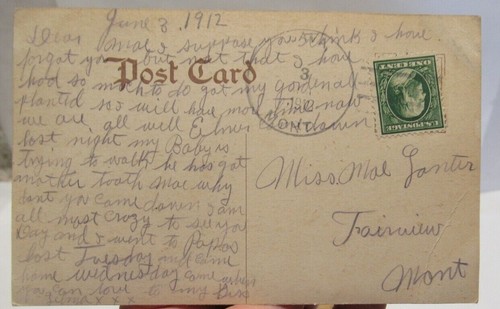 June 3, 1912
Dear Mae I suppose you think I have
forgot you but not that I have
Post Card
had so much to do got my gardenall
planted so I will have more time now
we are all well Elmer down
last night my Baby is
trying to walk he has got
another tooth Mae why
dont you come down I am
all most crazy to see you
Ray and I went to Papas
last Tuesday and came
home wednesday come when
you can love to
x x x
3
1912
MONT.
U.S. POSTAGE
ONE CENT
Miss. Mae
Fairview
Mont